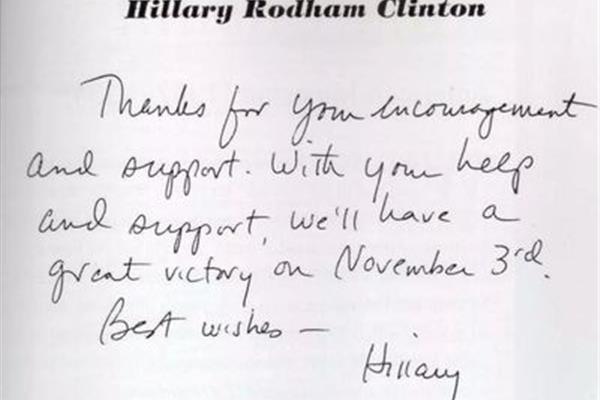 Hillary Rodham Clinton
Thanks for your encouragement
and support. With your help
and support, we'll have a
great victory on November 3rd.
Best wishes —
Hillary